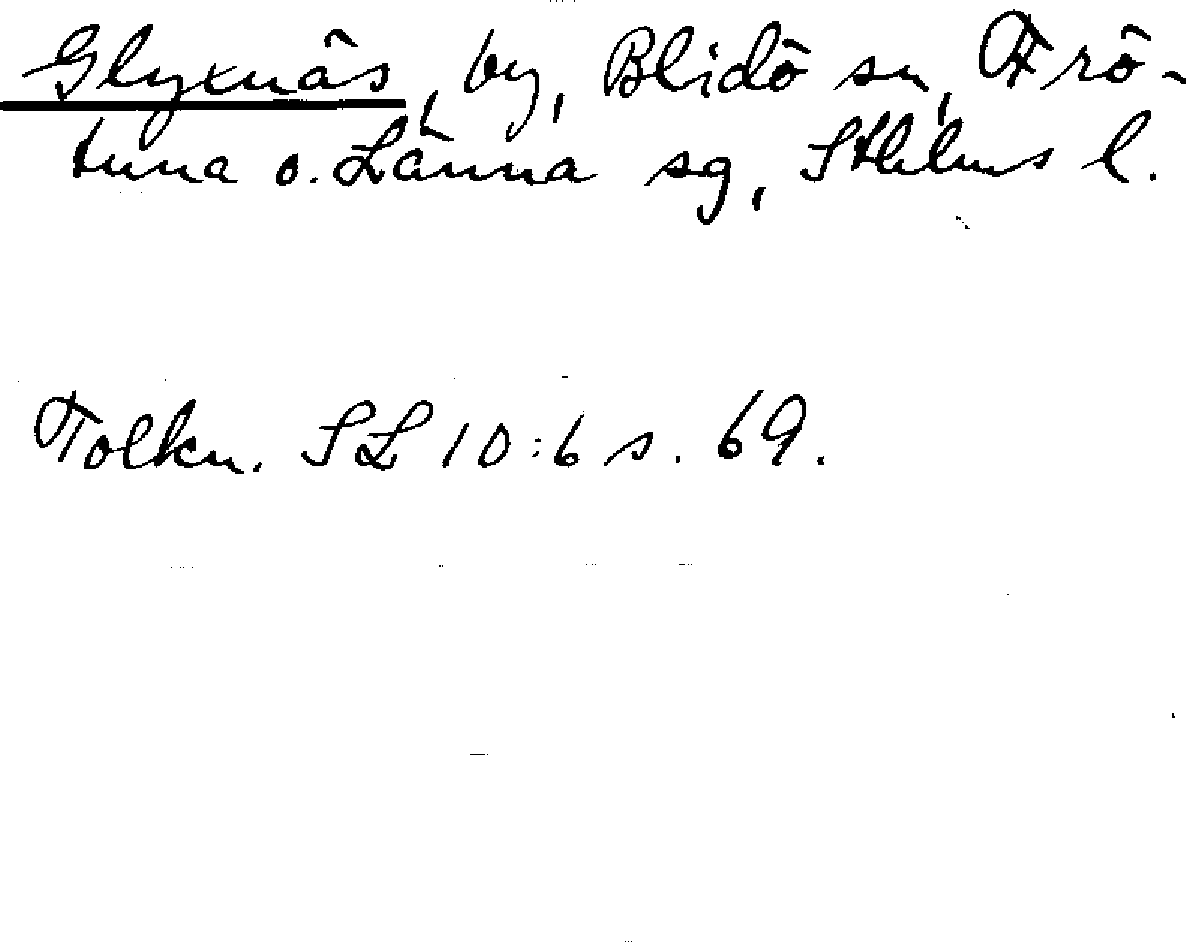 Glyxnäs, by, Blidö sn, Frö-
tuna o. Länna sg, Sthlms l.
Tolkn. SL 10:6 s. 69.